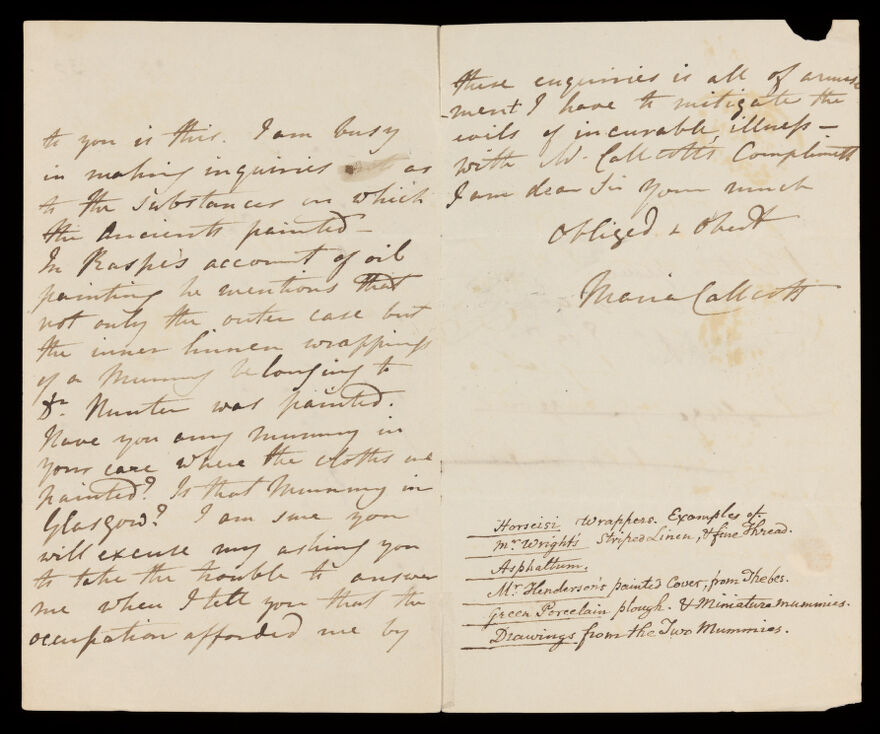 to you is this. I am busy
in making inquiries as
to the substances on which
the Ancients painted –
In Raspe's account of oil
painting he mentions that
not only the outer case but
the inner linnen wrappings
of a Mummy belonging to
Dr. Hunter was painted.
Have you any mummy in
your care where the cloths are
painted? Is that Mummy in
Glasgow? I am sure you
will excuse my asking you
to take the trouble to answer
me when I tell you that the
occupation afforded me by
these enquiries is all of amuse
-ment I have to mitigate the
evils of incurable illness –
with Mr. Callcott's Compliments
I am dear Sir Your much
Obliged & Obedt
Maria Callcott
Horseisi Wrappers. Examples of
Mr. Wright's Striped Linen, & fine Thread.
Asphaltum.
Mr. Henderson's painted Cover, from Thebes.
Green Porcelain plough. & Miniature mummies.
Drawings from the Two Mummies.